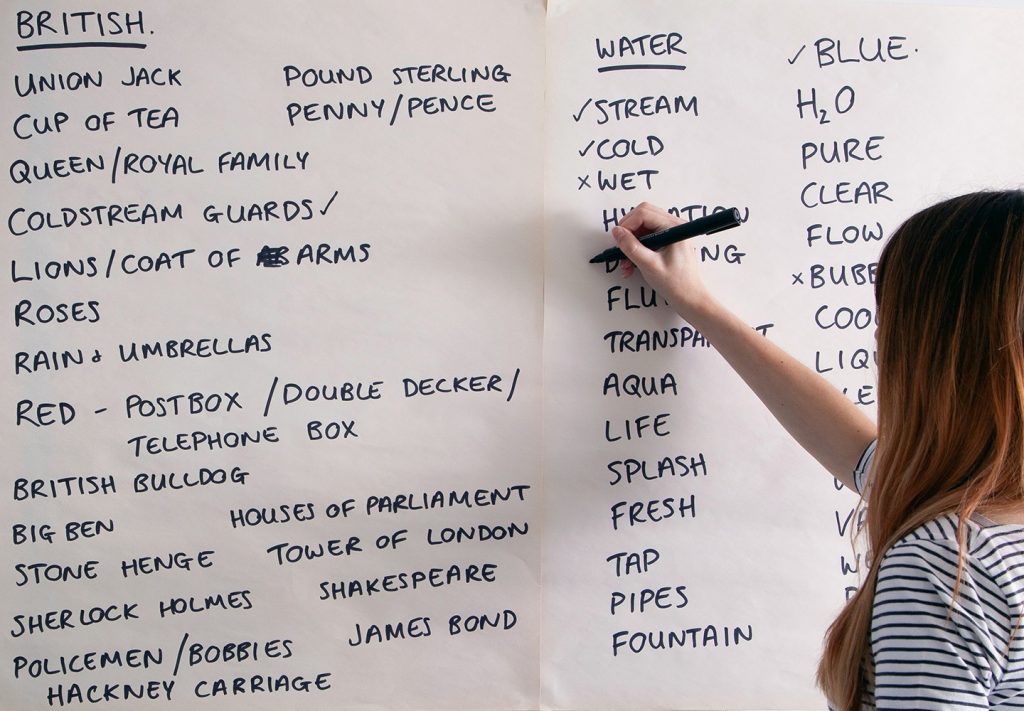 BRITISH.
UNION JACK
POUND STERLING
CUP OF TEA
PENNY/PENCE
QUEEN/ROYAL FAMILY
COLDSTREAM GUARDS✓
LIONS/COAT OF ARMS
ROSES
RAIN & UMBRELLAS
RED - POSTBOX /DOUBLE DECKER/
TELEPHONE BOX
BRITISH BULLDOG
BIG BEN
HOUSES OF PARLIAMENT
STONE HENGE
TOWER OF LONDON
SHERLOCK HOLMES
SHAKESPEARE
POLICEMEN/BOBBIES
JAMES BOND
HACKNEY CARRIAGE
WATER
✓STREAM
✓COLD
×WET
AQUA
LIFE
SPLASH
FRESH
TAP
PIPES
FOUNTAIN
✓BLUE.
H₂O
PURE
CLEAR
FLOW